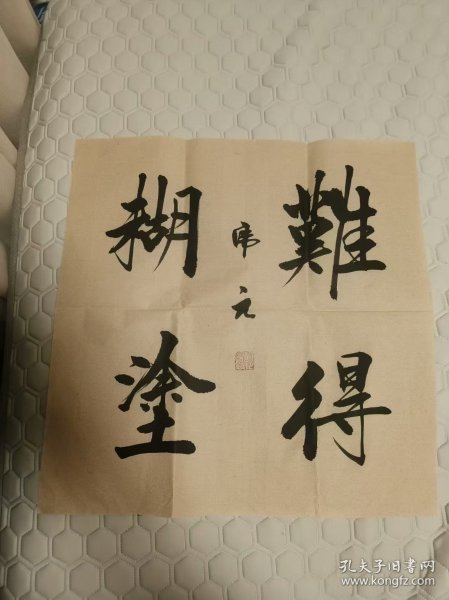 難得
糊塗
席元
孔夫子旧书网
www.kongfz.com